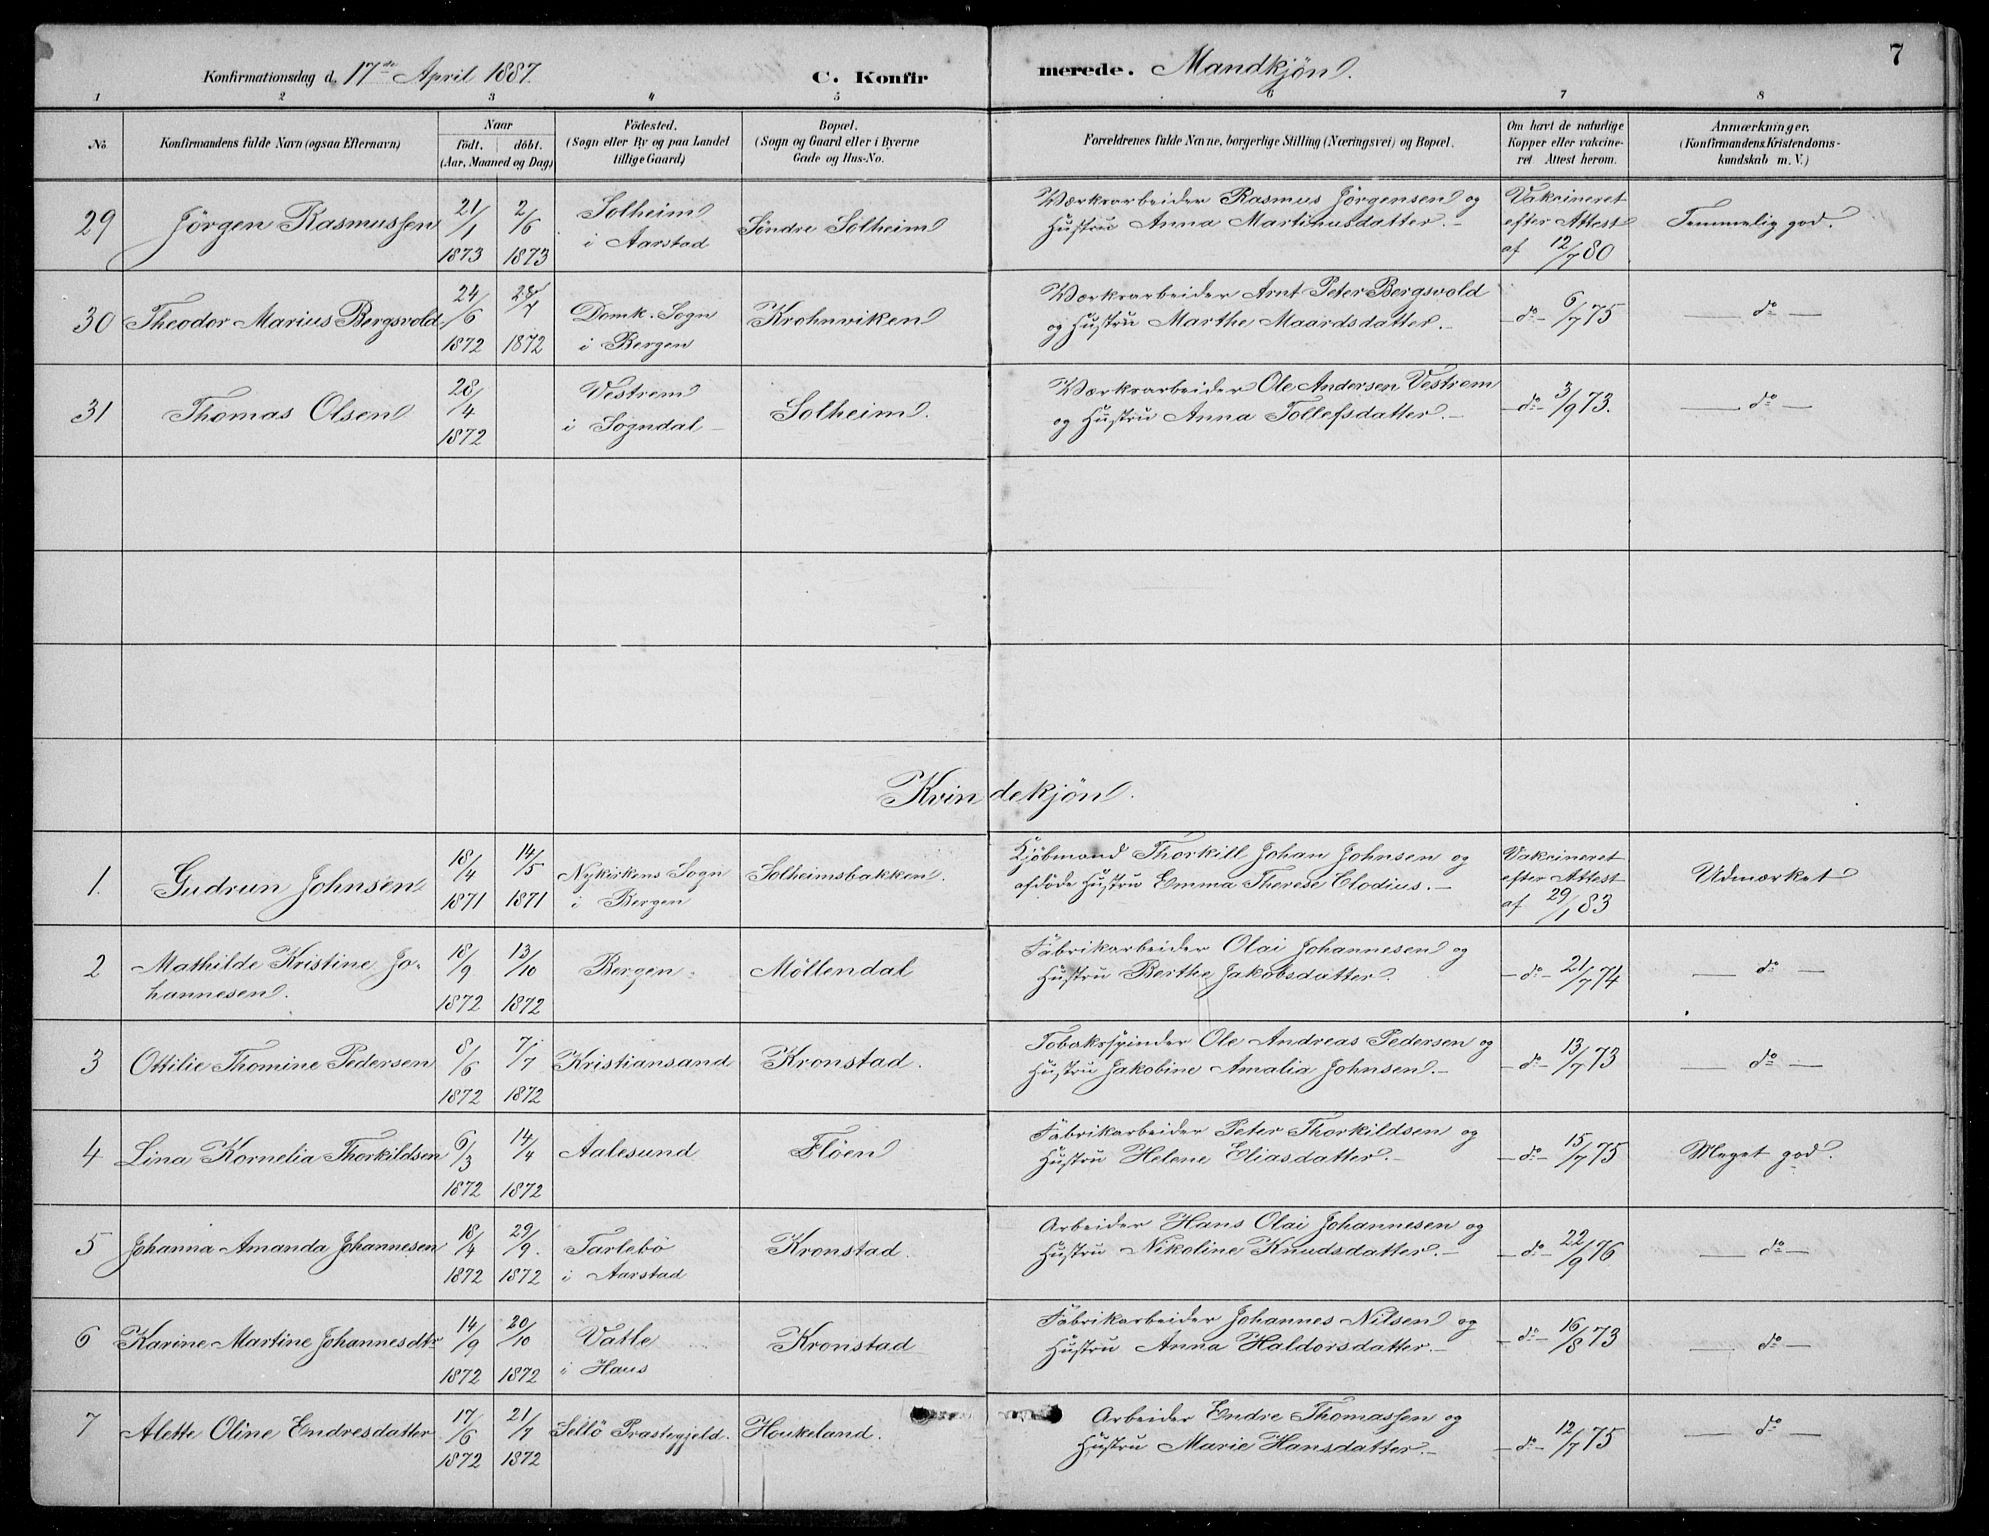 7
Konfirmationsdag d. 17de April 1887. C. Konfirmerede. Mandkjøn.
1 2 3 4 5 6 7 8
No
Konfirmandens fulde Navn (ogsaa Efternavn)
Naar
födt. döbt.
(Aar, Maaned og Dag)
Födested.
(Sogn eller By og paa Landet
tillige Gaard)
Bopæl.
(Sogn og Gaard eller i Byerne
Gade og Hus-No.
Forældrenes fulde Navne, borgerlige Stilling (Næringsvei) og Bopæl.
Om havt de naturlige
Kopper eller vakcine-
ret Attest herom.
Anmærkninger.
(Konfirmandens Kristendoms-
kundskab m. V.)
29 Jörgen Rasmussen 21/1 1873 2/6 1873 Solheim
i Aarstad
Söndre Solheim
Værksarbeider Rasmus Jörgensen og
Hustru Anna Martinusdatter.
Vakcineret
efter Attest
af 12/7 80
Temmelig god.
30 Theodor Marius Bergsvold. 24/6 1872 28/7 1872 Domk. Sogn
i Bergen
Krohnviken
Værksarbeider Arnt Peter Bergsvold
og Hustru Marthe Maardsdatter.
do 6/7 75
do
31 Thomas Olsen 28/4 1872 Vestrem
i Sogndal
Solheim.
Værksarbeider Ole Andersen Vestrem
og Hustru Anna Tollefsdatter.
do 3/9 73.
do
Kvindekjøn.
1. Gudrun Johnsen 18/4 1871 14/5 1871 Nykirkens Sogn
i Bergen
Solheimsbakken.
Kjöbmand Thorkill Johan Johnsen og
afdöde Hustru Emma Therese Clodius.
Vakcineret
efter Attest
af 29/1 83
Udmærket
2 Mathilde Kristine Jo-
hannesen. 18/9 1872 13/10 1872 Bergen
Möllendal
Fabrikarbeider Olai Johannesen og
Hustru Berthe Jakobsdatter.
do 21/7 74
do
3 Ottilie Thomine Pedersen 8/6 1872 7/7 1872 Kristiansand
Kronstad.
Tobaksspinder Ole Andreas Pedersen og
Hustru Jakobine Amalia Johnsen.
do 13/7 73
do
4 Lina Kornelia Thorkildsen 6/3 1872 14/4 1872 Aalesund
Flöen
Fabrikarbeider Peter Thorkildsen og
Hustru Helene Eliasdatter.
do 15/7 75
Meget god.
5 Johanna Amanda Johannesen 18/4 1872 29/9. 1872 Tarlebö
i Aarstad
Kronstad.
Arbeider Hans Olai Johannesen og
Hustru Nikoline Knudsdatter.
do 22/9 76
do
6 Karine Martine Johannesdtr 14/9 1872 20/10 1872 Vatle
i Haus
Kronstad
Fabrikarbeider Johannes Nilsen og
Hustru Anna Haldorsdatter.
do 16/8 73
do
7 Alette Oline Endresdatter 17/6 1872 21/7 1872 Sellö Præstegjeld.
Houkeland.
Arbeider Endre Thomassen og
Hustru Marie Hansdatter.
do 12/7 75
do